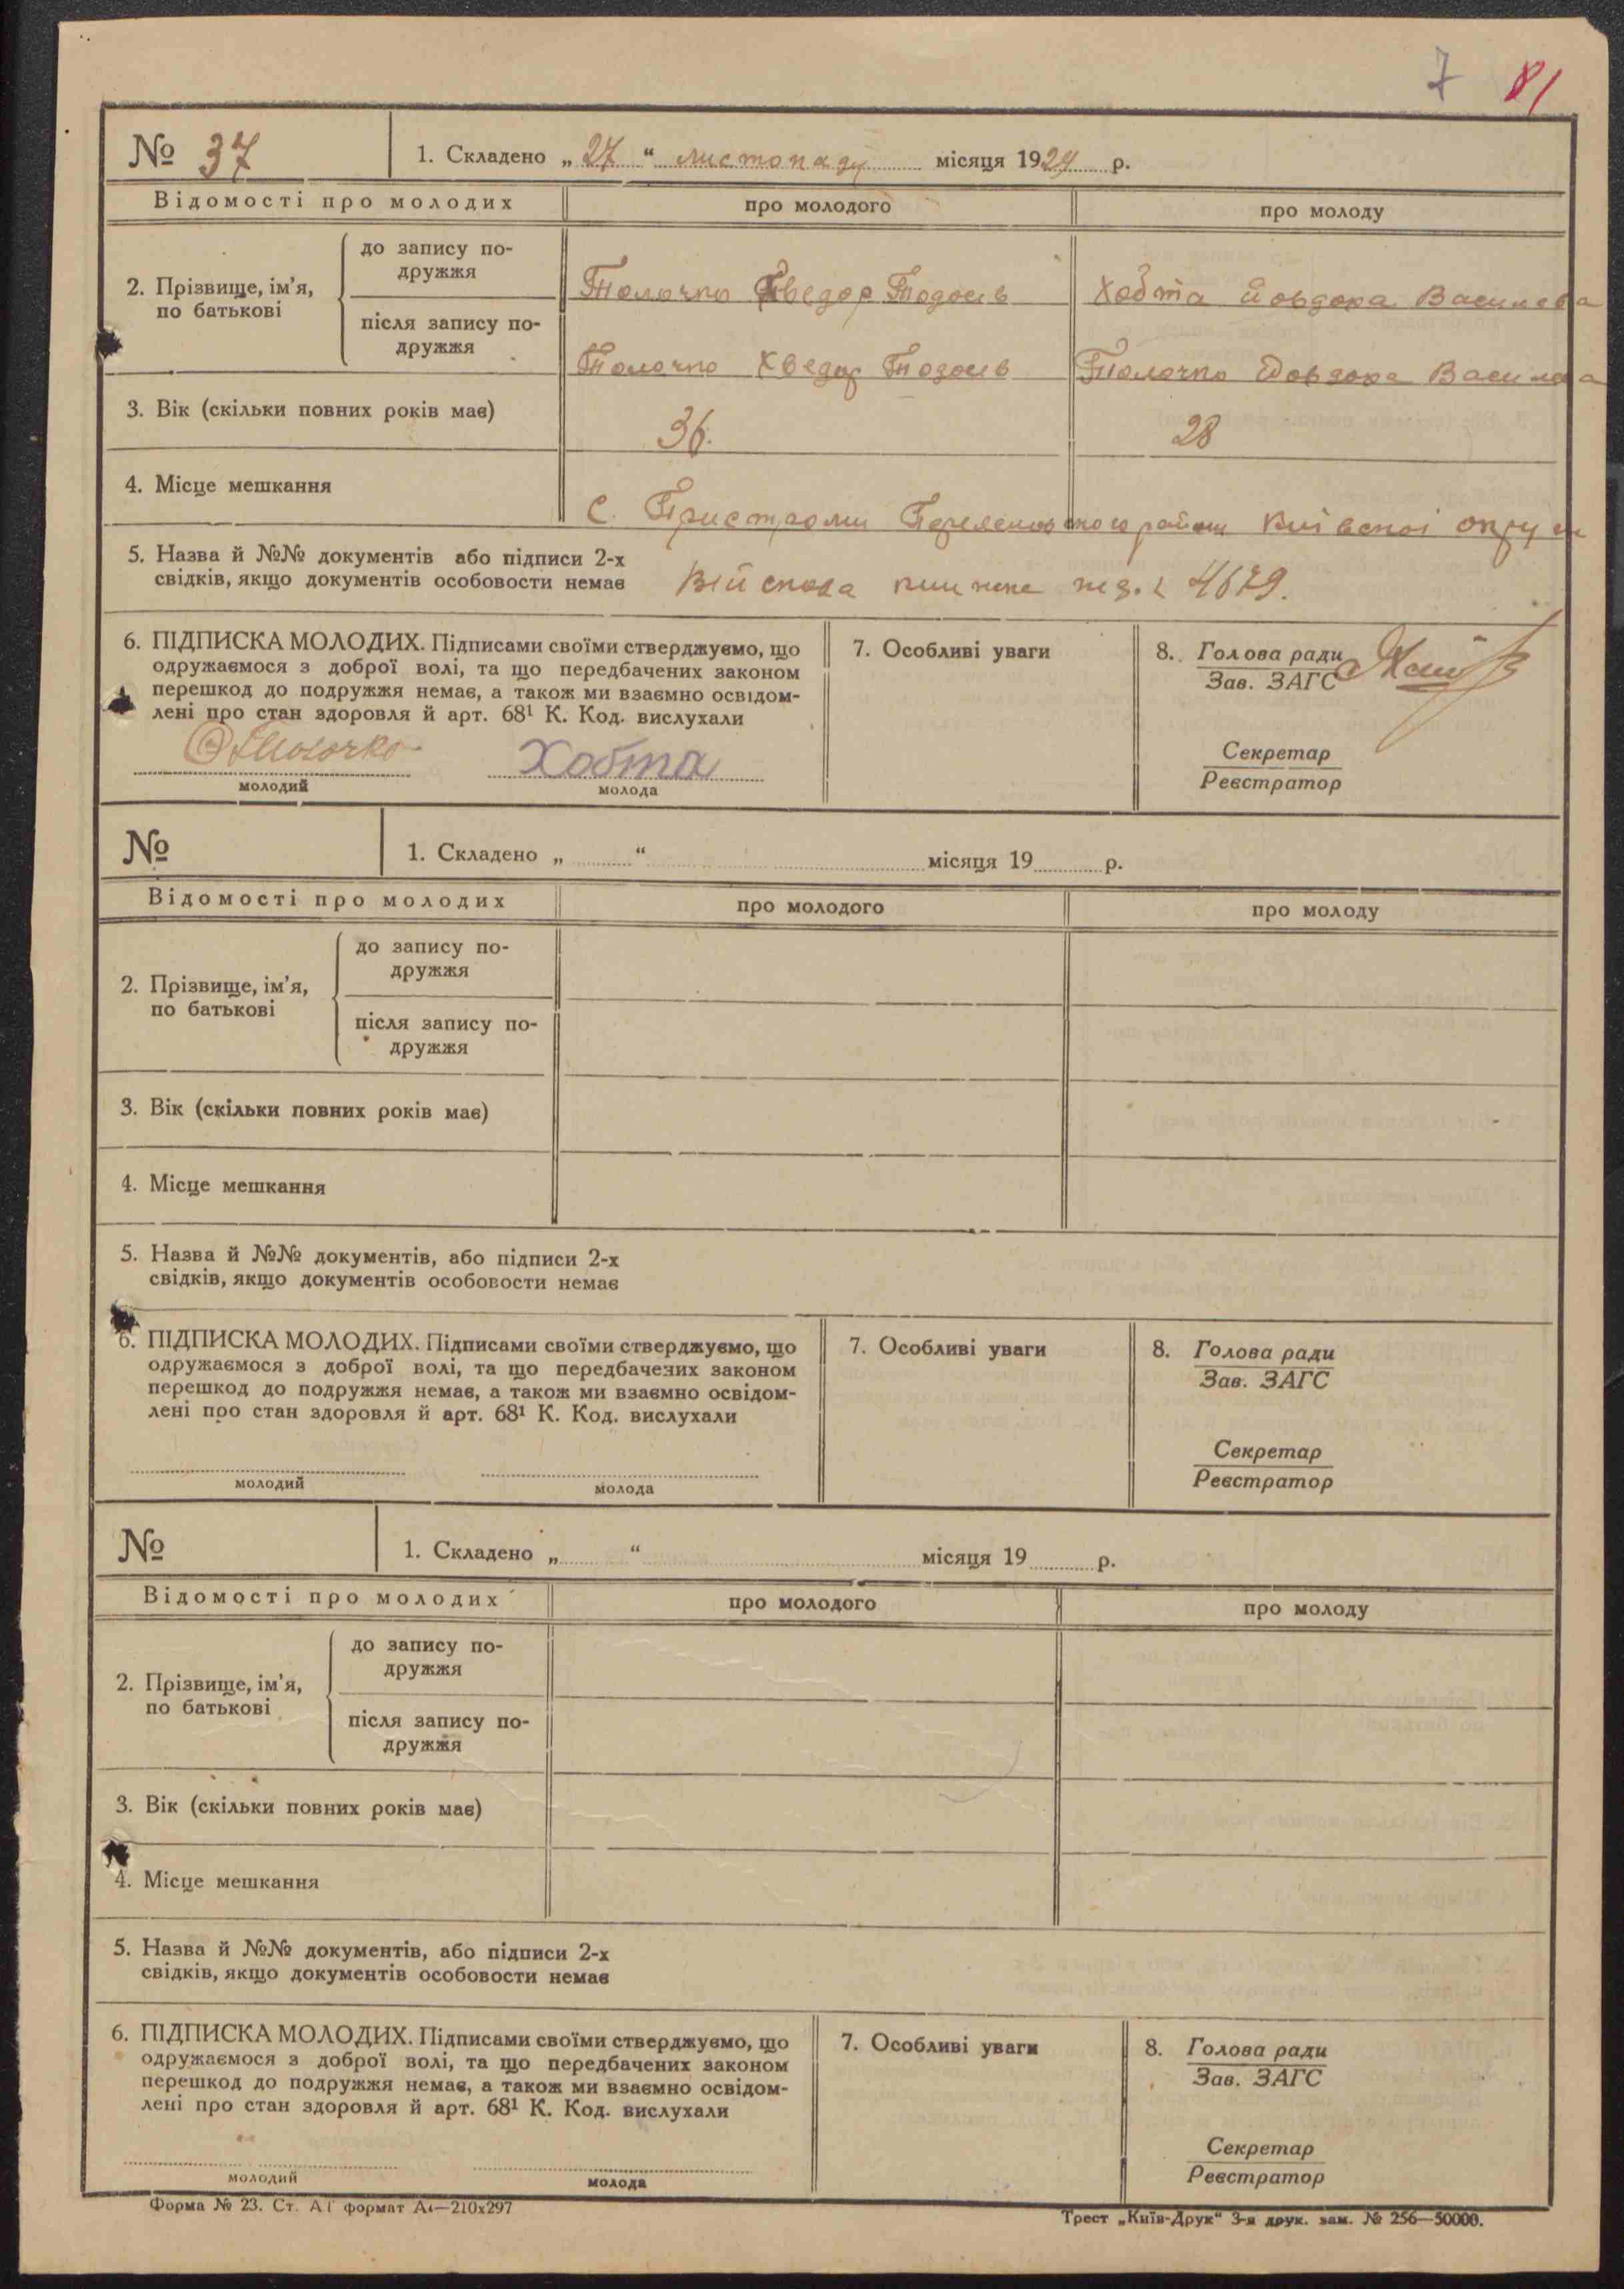 7 81
№ 37
1. Складено „ 27 “ листопаду місяця 1929 р.
Відомості про молодих
про молодого
про молоду
2. Прізвище, ім’я, по батькові
до запису подружжя
Толочко Хведор Тодосів
Хобта Йовдоха Василева
після запису подружжя
Толочко Хведор Тодосів
Толочко Йовдоха Василева
3. Вік (скільки повних років має)
36.
28
4. Місце мешкання
С. Пристроми Переяславського району Київської округи
5. Назва й №№ документів або підписи 2-х
свідків, якщо документів особовости немає
Військова книжка 4679.
6. ПІДПИСКА МОЛОДИХ. Підписами своїми стверджуємо, що
одружаємося з доброї волі, та що передбачених законом
перешкод до подружжя немає, а також ми взаємно освідом-
лені про стан здоровля й арт. 68¹ К. Код. вислухали
Толочко
молодий
Хобта
молода
7. Особливі уваги
8. Голова ради
Зав. ЗАГС
Секретар
Реєстратор
№
1. Складено „ “ місяця 19 р.
Відомості про молодих
про молодого
про молоду
2. Прізвище, ім’я,
по батькові
до запису по-
дружжя
після запису по-
дружжя
3. Вік (скільки повних років має)
4. Місце мешкання
5. Назва й №№ документів, або підписи 2-х
свідків, якщо документів особовости немає
6. ПІДПИСКА МОЛОДИХ. Підписами своїми стверджуємо, що
одружаємося з доброї волі, та що передбачених законом
перешкод до подружжя немає, а також ми взаємно освідом-
лені про стан здоровля й арт. 68¹ К. Код. вислухали
молодий
молода
7. Особливі уваги
8. Голова ради
Зав. ЗАГС
Секретар
Реєстратор
№
1. Складено „ “ місяця 19 р.
Відомості про молодих
про молодого
про молоду
2. Прізвище, ім’я,
по батькові
до запису по-
дружжя
після запису по-
дружжя
3. Вік (скільки повних років має)
4. Місце мешкання
5. Назва й №№ документів, або підписи 2-х
свідків, якщо документів особовости немає
6. ПІДПИСКА МОЛОДИХ. Підписами своїми стверджуємо, що
одружаємося з доброї волі, та що передбачених законом
перешкод до подружжя немає, а також ми взаємно освідом-
лені про стан здоровля й арт. 68¹ К. Код. вислухали
молодий
молода
7. Особливі уваги
8. Голова ради
Зав. ЗАГС
Секретар
Реєстратор
Форма № 23. Ст. АГ формат А₄—210х297
Трест „Київ-Друк“ 3-я друк. зам. № 256—50000.